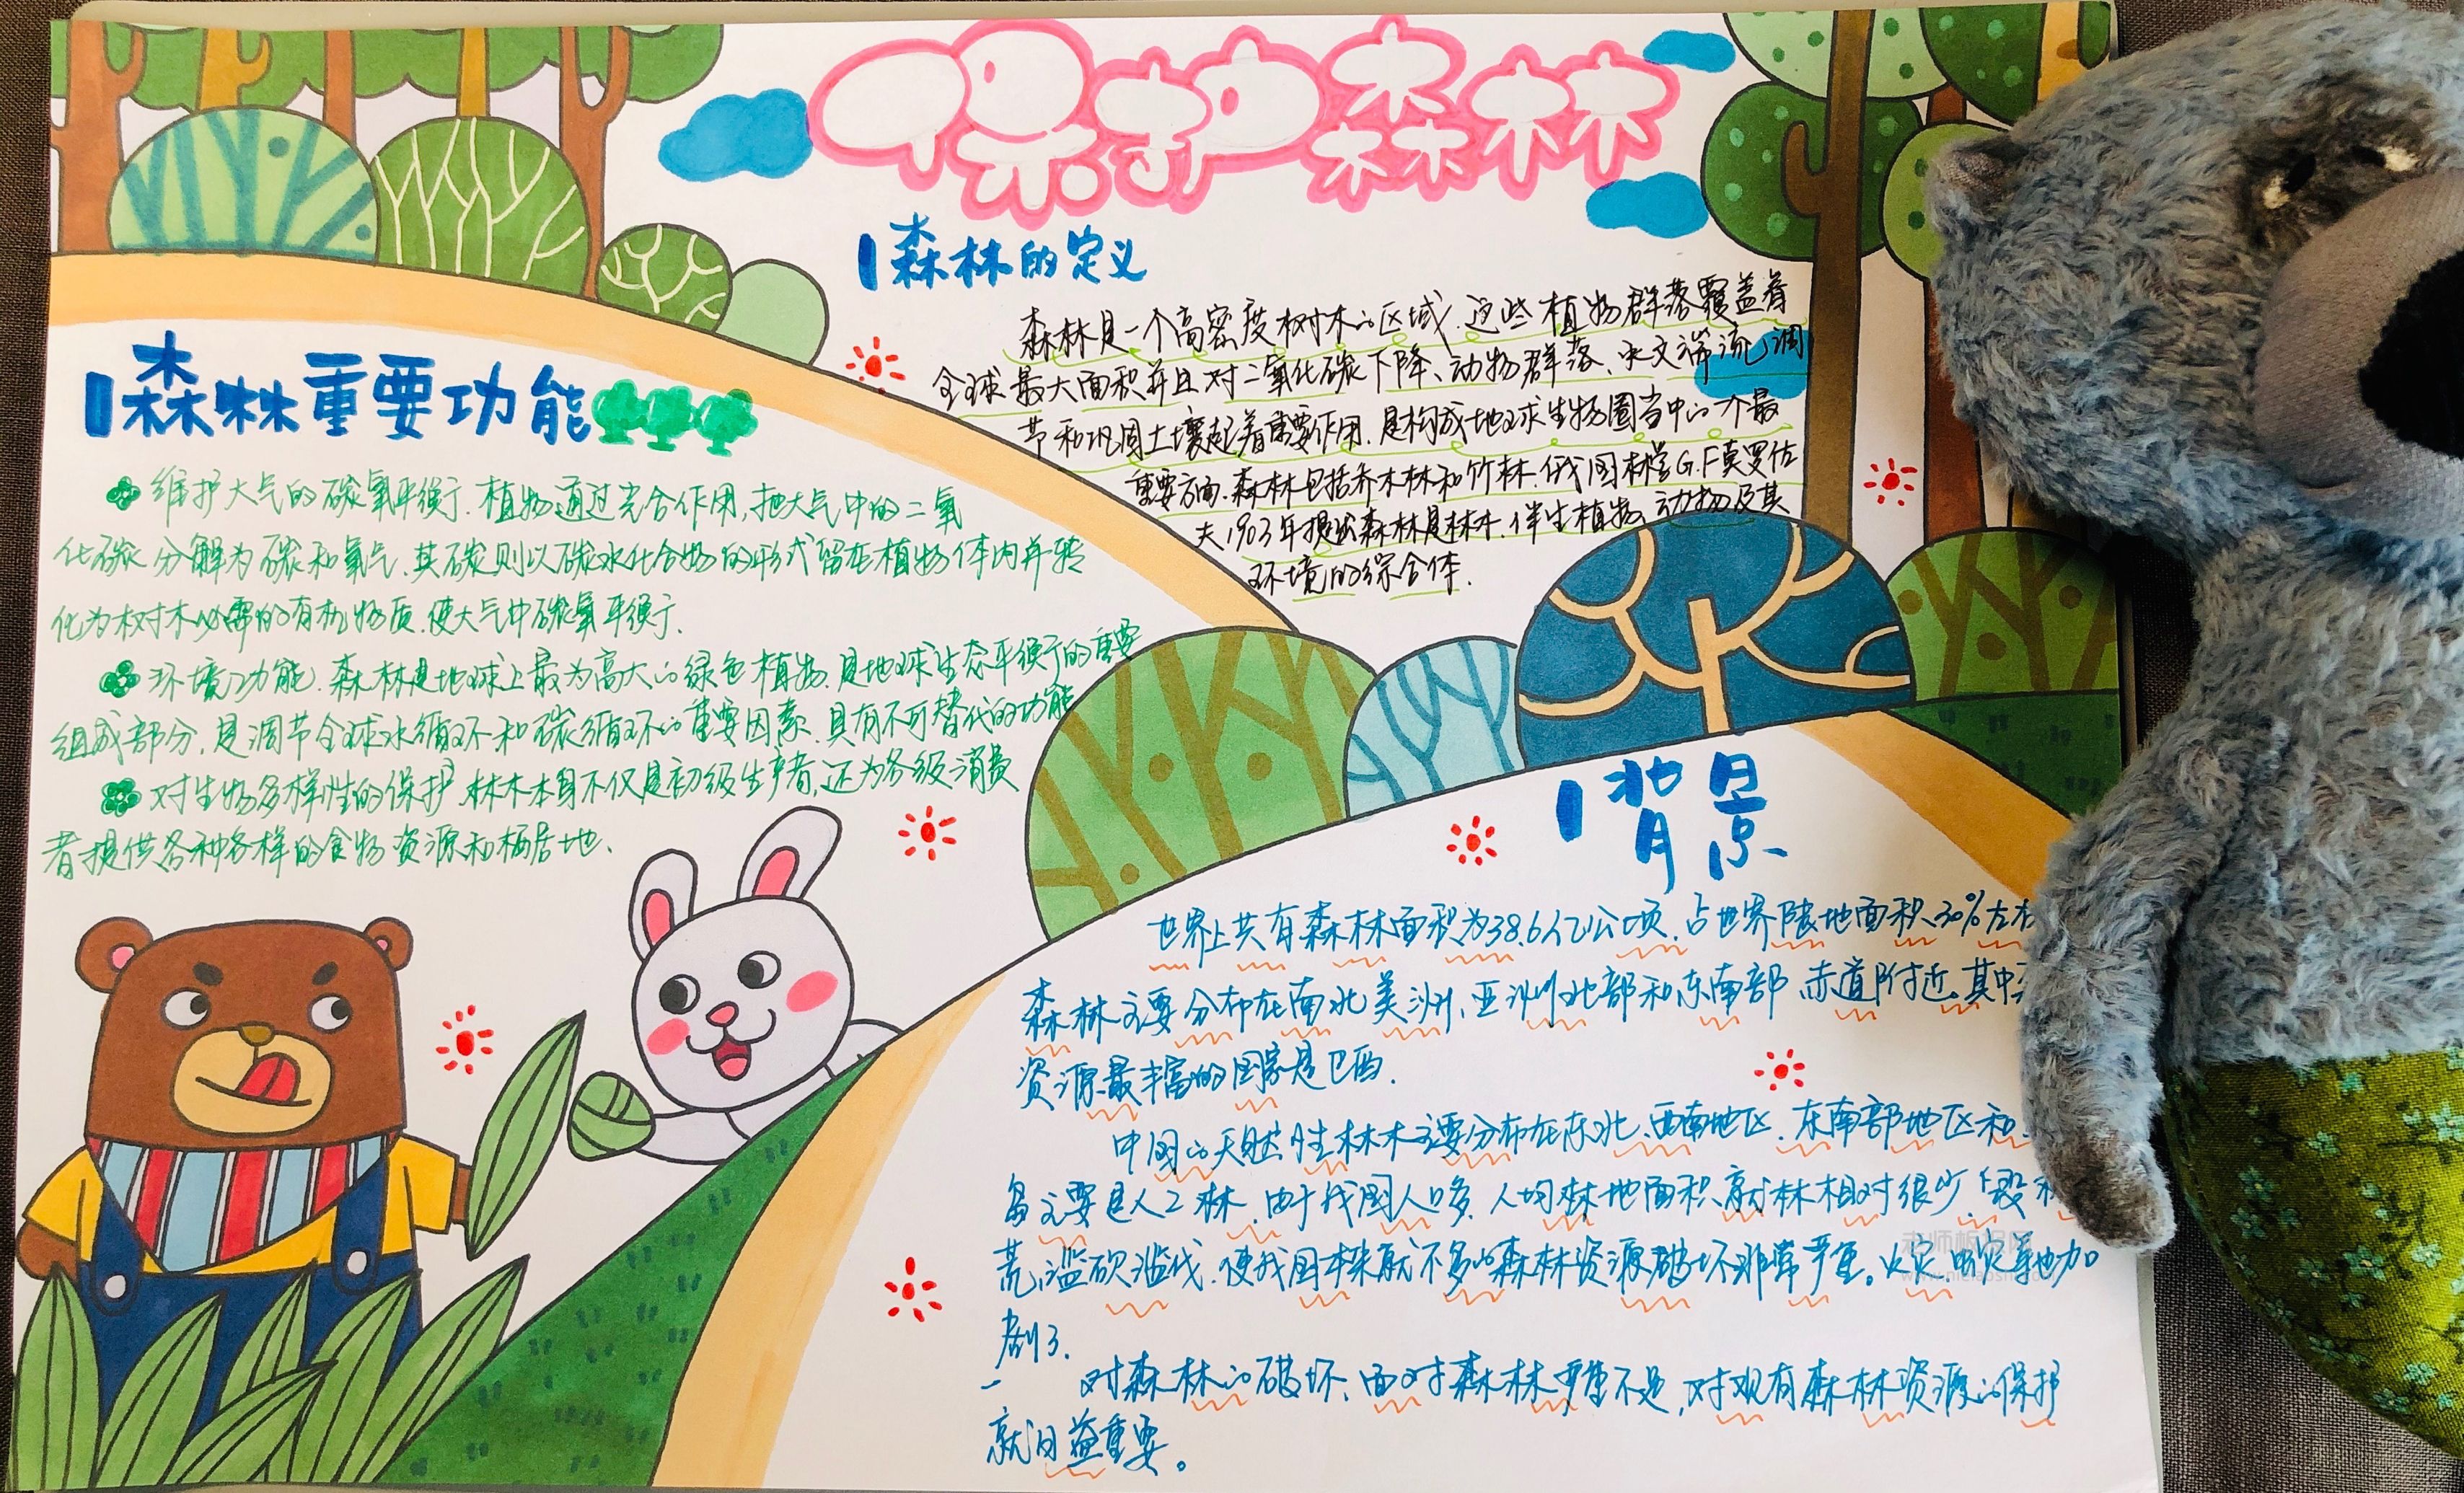 保护森林
森林的定义
森林是一个高密度树木的区域.这些植物群落覆盖着
全球最大面积并且对二氧化碳下降、动物群落、水文湍流调
节和巩固土壤起着重要作用.是构成地球生物圈当中的一个最
重要方面.森林包括乔木林和竹林.俄国林学G.F莫罗佐
夫1903年提出森林是林木.伴生植物.动物及其
环境的综合体.
森林重要功能
维护大气的碳氧平衡.植物通过光合作用,把大气中的二氧
化碳分解为碳和氧气.其碳则以碳水化合物的形式留在植物体内并转
化为树木必需的有机物质.使大气中碳氧平衡.
环境功能.森林是地球上最为高大的绿色植物.是地球生态平衡的重要
组成部分,是调节全球水循环和碳循环的重要因素.具有不可替代的功能
对生物多样性的保护.林木本身不仅是初级生产者,还为各级消费
者提供各种各样的食物资源和栖居地.
背景
世界上共有森林面积为38.6亿公顷.占世界陆地面积30%左右
森林主要分布在南北美洲、亚洲北部和东南部、赤道附近.其中
资源最丰富的国家是巴西.
中国的天然性林木主要分布在东北、西南地区.东南部地区和
岛主要是人工林.由于我国人口多.人均林地面积、森林相对很少.
荒,滥砍滥伐.使我国本来就不多的森林资源破坏非常严重。火灾 虫灾等也加
剧了.
对森林的破坏.面对森林严重不足,对现有森林资源的保护
就日益重要。
老师板报网